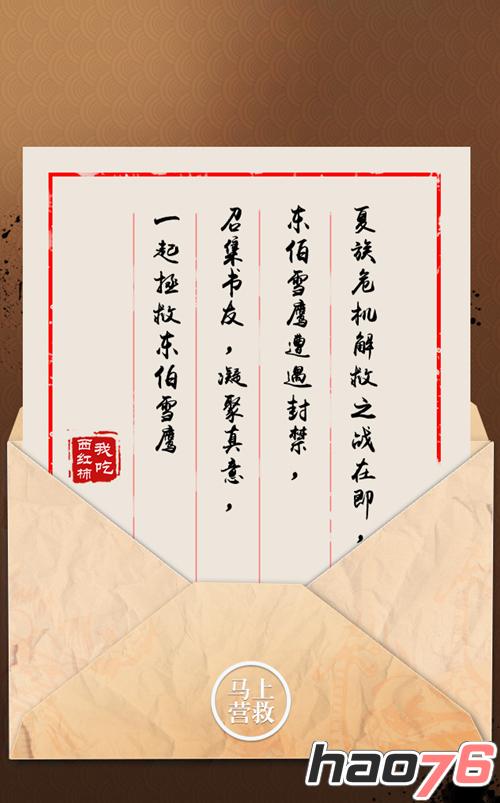 夏族危机解救之战在即，
东伯雪鹰遭遇封禁，
召集书友，凝聚真意，
一起拯救东伯雪鹰
我吃
西红柿
马上
营救
hao76